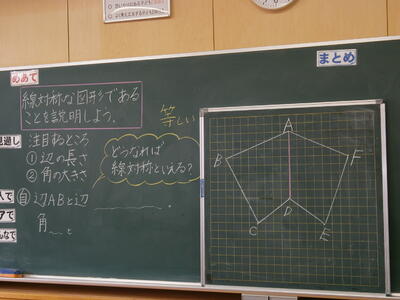 まとめ
めあて
線対称な図形である
ことを説明しよう。
等しい
見通し
注目するところ
① 辺の長さ
② 角の大きさ
どうなれば
線対称といえる?
自 辺ABと辺
角 と
A
B
F
D
C
E